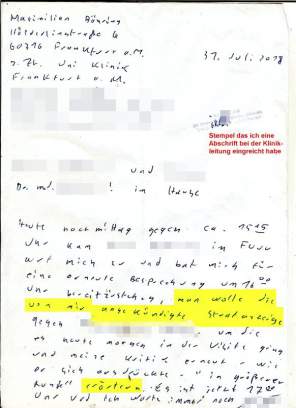 Maximilian Bähring
Hölderlinstraße 4
60316 Frankfurt a.M.
z.Zt. Uni Klinik
Frankfurt a.M.
31. Juli 2018
Stempel das ich eine
Abschrift bei der Klinik-
leitung eingreicht habe
und
Dr. med. ! im Hause
Heute nachmittag gegen ca. 15 15
Uhr kam im Flur
auf mich zu und bat mich für
eine erneute Besprechung um 16 00
Uhr bereitzustehen, man wolle die
von mir angekündigte Strafanzeige
gegen um die
es heute morgen in der Visite ging
und meine Kritik erneut - wie
er sich ausdrückte - "in größerer
erörtern. Es ist jetzt 17 20
Uhr und ich warte immer noch